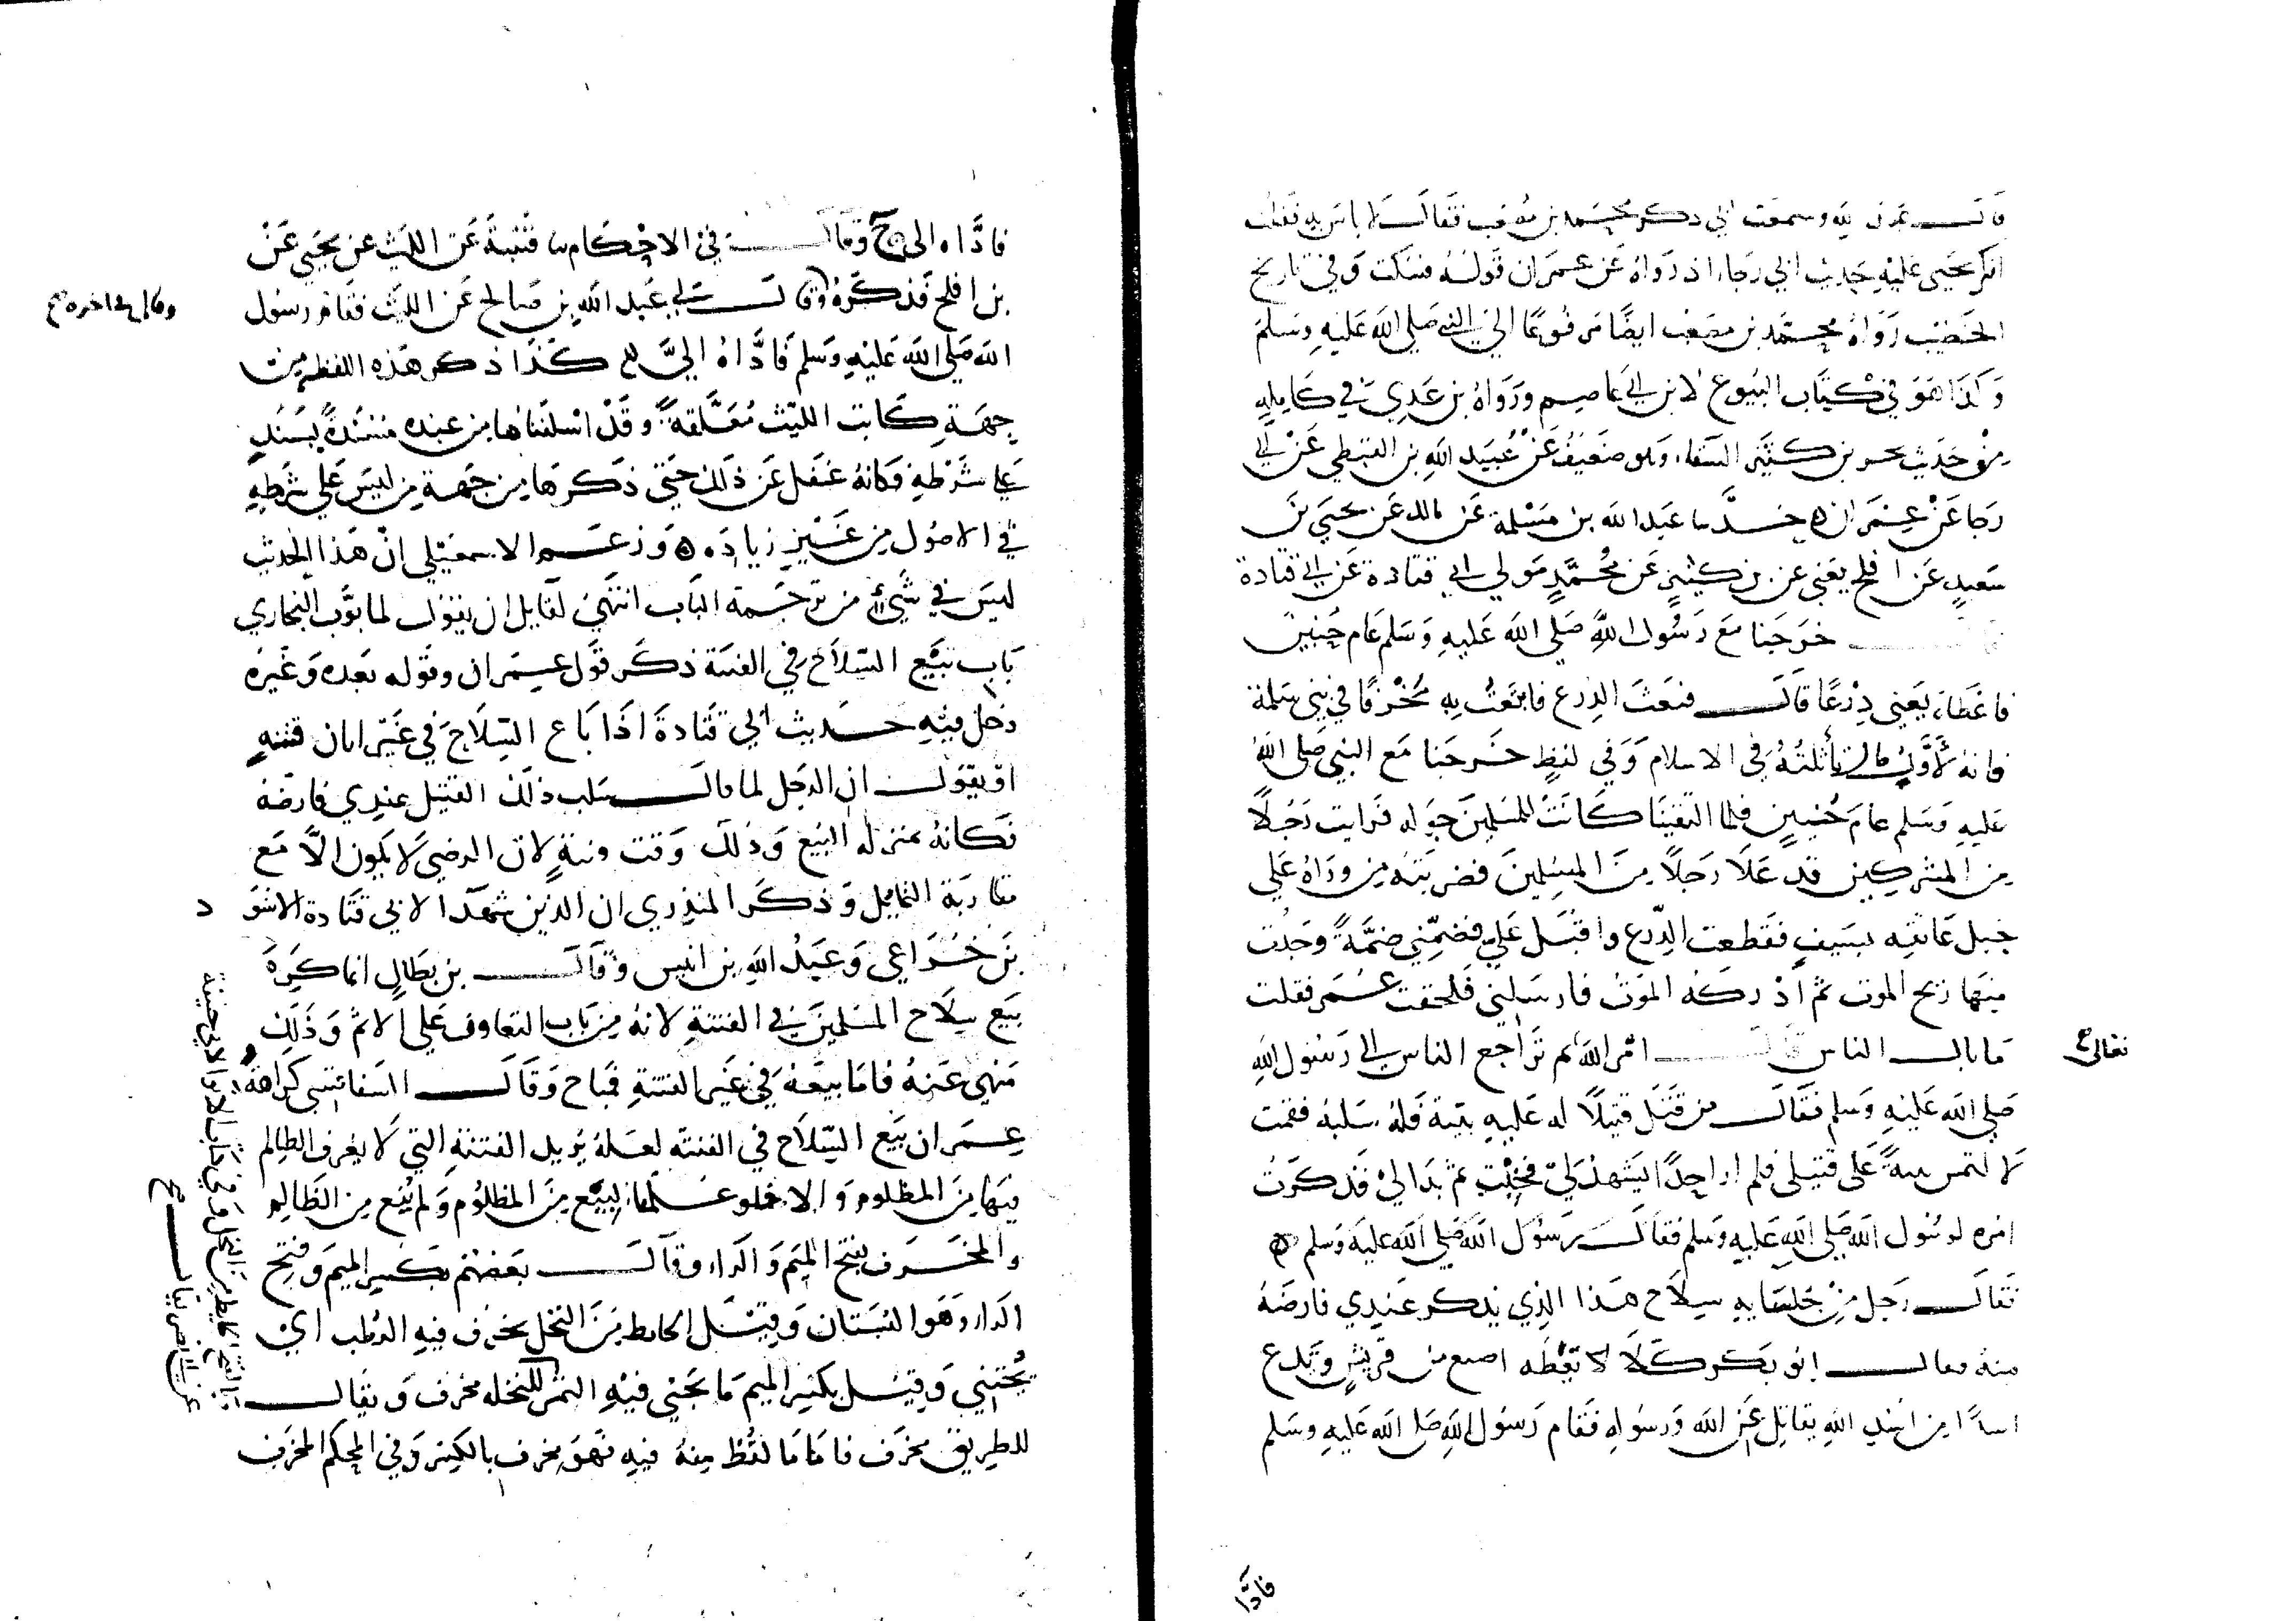 قال عبد الله وسمعت ابي ذكر محمد بن مصعب فقال لا باس به فقلت
انكر يحيى عليه حديث ابي رجاء اذ رواه عن عمران قوله فسكت وفي تاريخ
الخطيب رواه محمد بن مصعب ايضًا مرفوعًا الى النبي صلى الله عليه وسلم
وكذا هو في كتاب البيوع لابن ابي عاصم ورواه بن عدي في كامله
من حديث بحر بن كنيز السقاء وهو ضعيف عن عبيد الله بن القبطي عن ابي
رجا عن عمران حدثنا عبد الله بن مسلمة عن مالك عن يحيى بن
سعيد عن افلح يعني عن بن كثير عن محمد مولى ابي قتادة عن ابي قتادة
خرجنا مع رسول الله صلى الله عليه وسلم عام حنين
فاعطاه يعني درعًا قال فبعت الدرع فابتعت به مخرفًا في بني سلمة
فانه لاول مال تأثلته في الاسلام وفي لفظ خرجنا مع النبي صلى الله
عليه وسلم عام حنين فلما التقينا كانت للمسلمين جوله فرايت رجلًا
من المشركين قد علا رجلًا من المسلمين فضربته من وراه على
حبل عاتقه بسيف فقطعت الدرع واقبل علي فضمني ضمةً وجدت
منها ريح الموت ثم ادركه الموت فارسلني فلحقت عمر فقلت
ما بال الناس قال امر الله ثم تراجع الناس الى رسول الله
تعالى
صلى الله عليه وسلم فقال من قتل قتيلًا له عليه بينة فله سلبه فقمت
لالتمس بينةً على قتيلي فلم ار احدًا يشهد لي فجلست ثم بدا لي فذكرت
امره لرسول الله صلى الله عليه وسلم فقال رسول الله صلى الله عليه وسلم
فقال رجل من جلسايه سلاح هذا الذي يذكر عندي فارضه
منه فقال ابو بكر كلا لا تعطه اصبع من قريش وتدع
اسدًا من اسد الله يقاتل عن الله ورسوله فقام رسول الله صلى الله عليه وسلم
فادّا
فادّاه الي وقال في الاحكام نا قتيبة عن الليث عن يحيى عن
بن افلح فذكره وقال لي عبد الله بن صالح عن الليث فقام رسول
وقال في اخره
الله صلى الله عليه وسلم فادّاه اليّ كذا ذكر هذه اللفظه من
جهة كاتب الليث معلقة وقد اسلفناها من عنده مسندةً بسند
على شرطه وكانه غفل عن ذلك حتى ذكرها من جهة من ليس على شرطه
في الاصول من غير زياده وزعم الاسمعيلي ان هذا الحديث
ليس في شيء من ترجمة الباب انتهى لقايل ان يقول لما بوب البخاري
باب بيع السلاح في الفتنة ذكر قول عمران وقوله بعده وغيره
دخل فيه حديث ابي قتادة اذا باع السلاح في غير ايان فتنه
او يقول ان الرجل لما قال سلب ذلك القتيل عندي فارضه
فكانه بمنزله البيع وذلك وقت فتنةٍ لان الرضى لا يكون الا مع
مقاربة التماثل وذكر المنذري ان الذين شهدا لابي قتادة الاسود
بن خزاعي وعبد الله بن انيس وقال بن بطال انما كره
بيع سلاح المسلمين في الفتنة لانه من باب التعاون على الاثم وذلك
منهي عنه فاما بيعه في غير الفتنة فمباح وقال السفاقسي كراهة
عمران بيع السلاح في الفتنه لعله يريد الفتنة التي لا يعرف الظالم
فيها من المظلوم والا فلو علما لبيع من المظلوم ولم يبع من الظالم
والمخرف بفتح الميم والراء وقال بعضهم بكسر الميم وفتح
الراء وهو البستان وقيل الحائط من النخل يخرف فيه الرطب اي
يجتني وقيل بكسر الميم ما يجنى فيه الثمر للنخله مخرف ويقال
للطريق مخرف فاما ما لقط منه فيه فهو مخرف بالكسر وفي المحكم المخرف